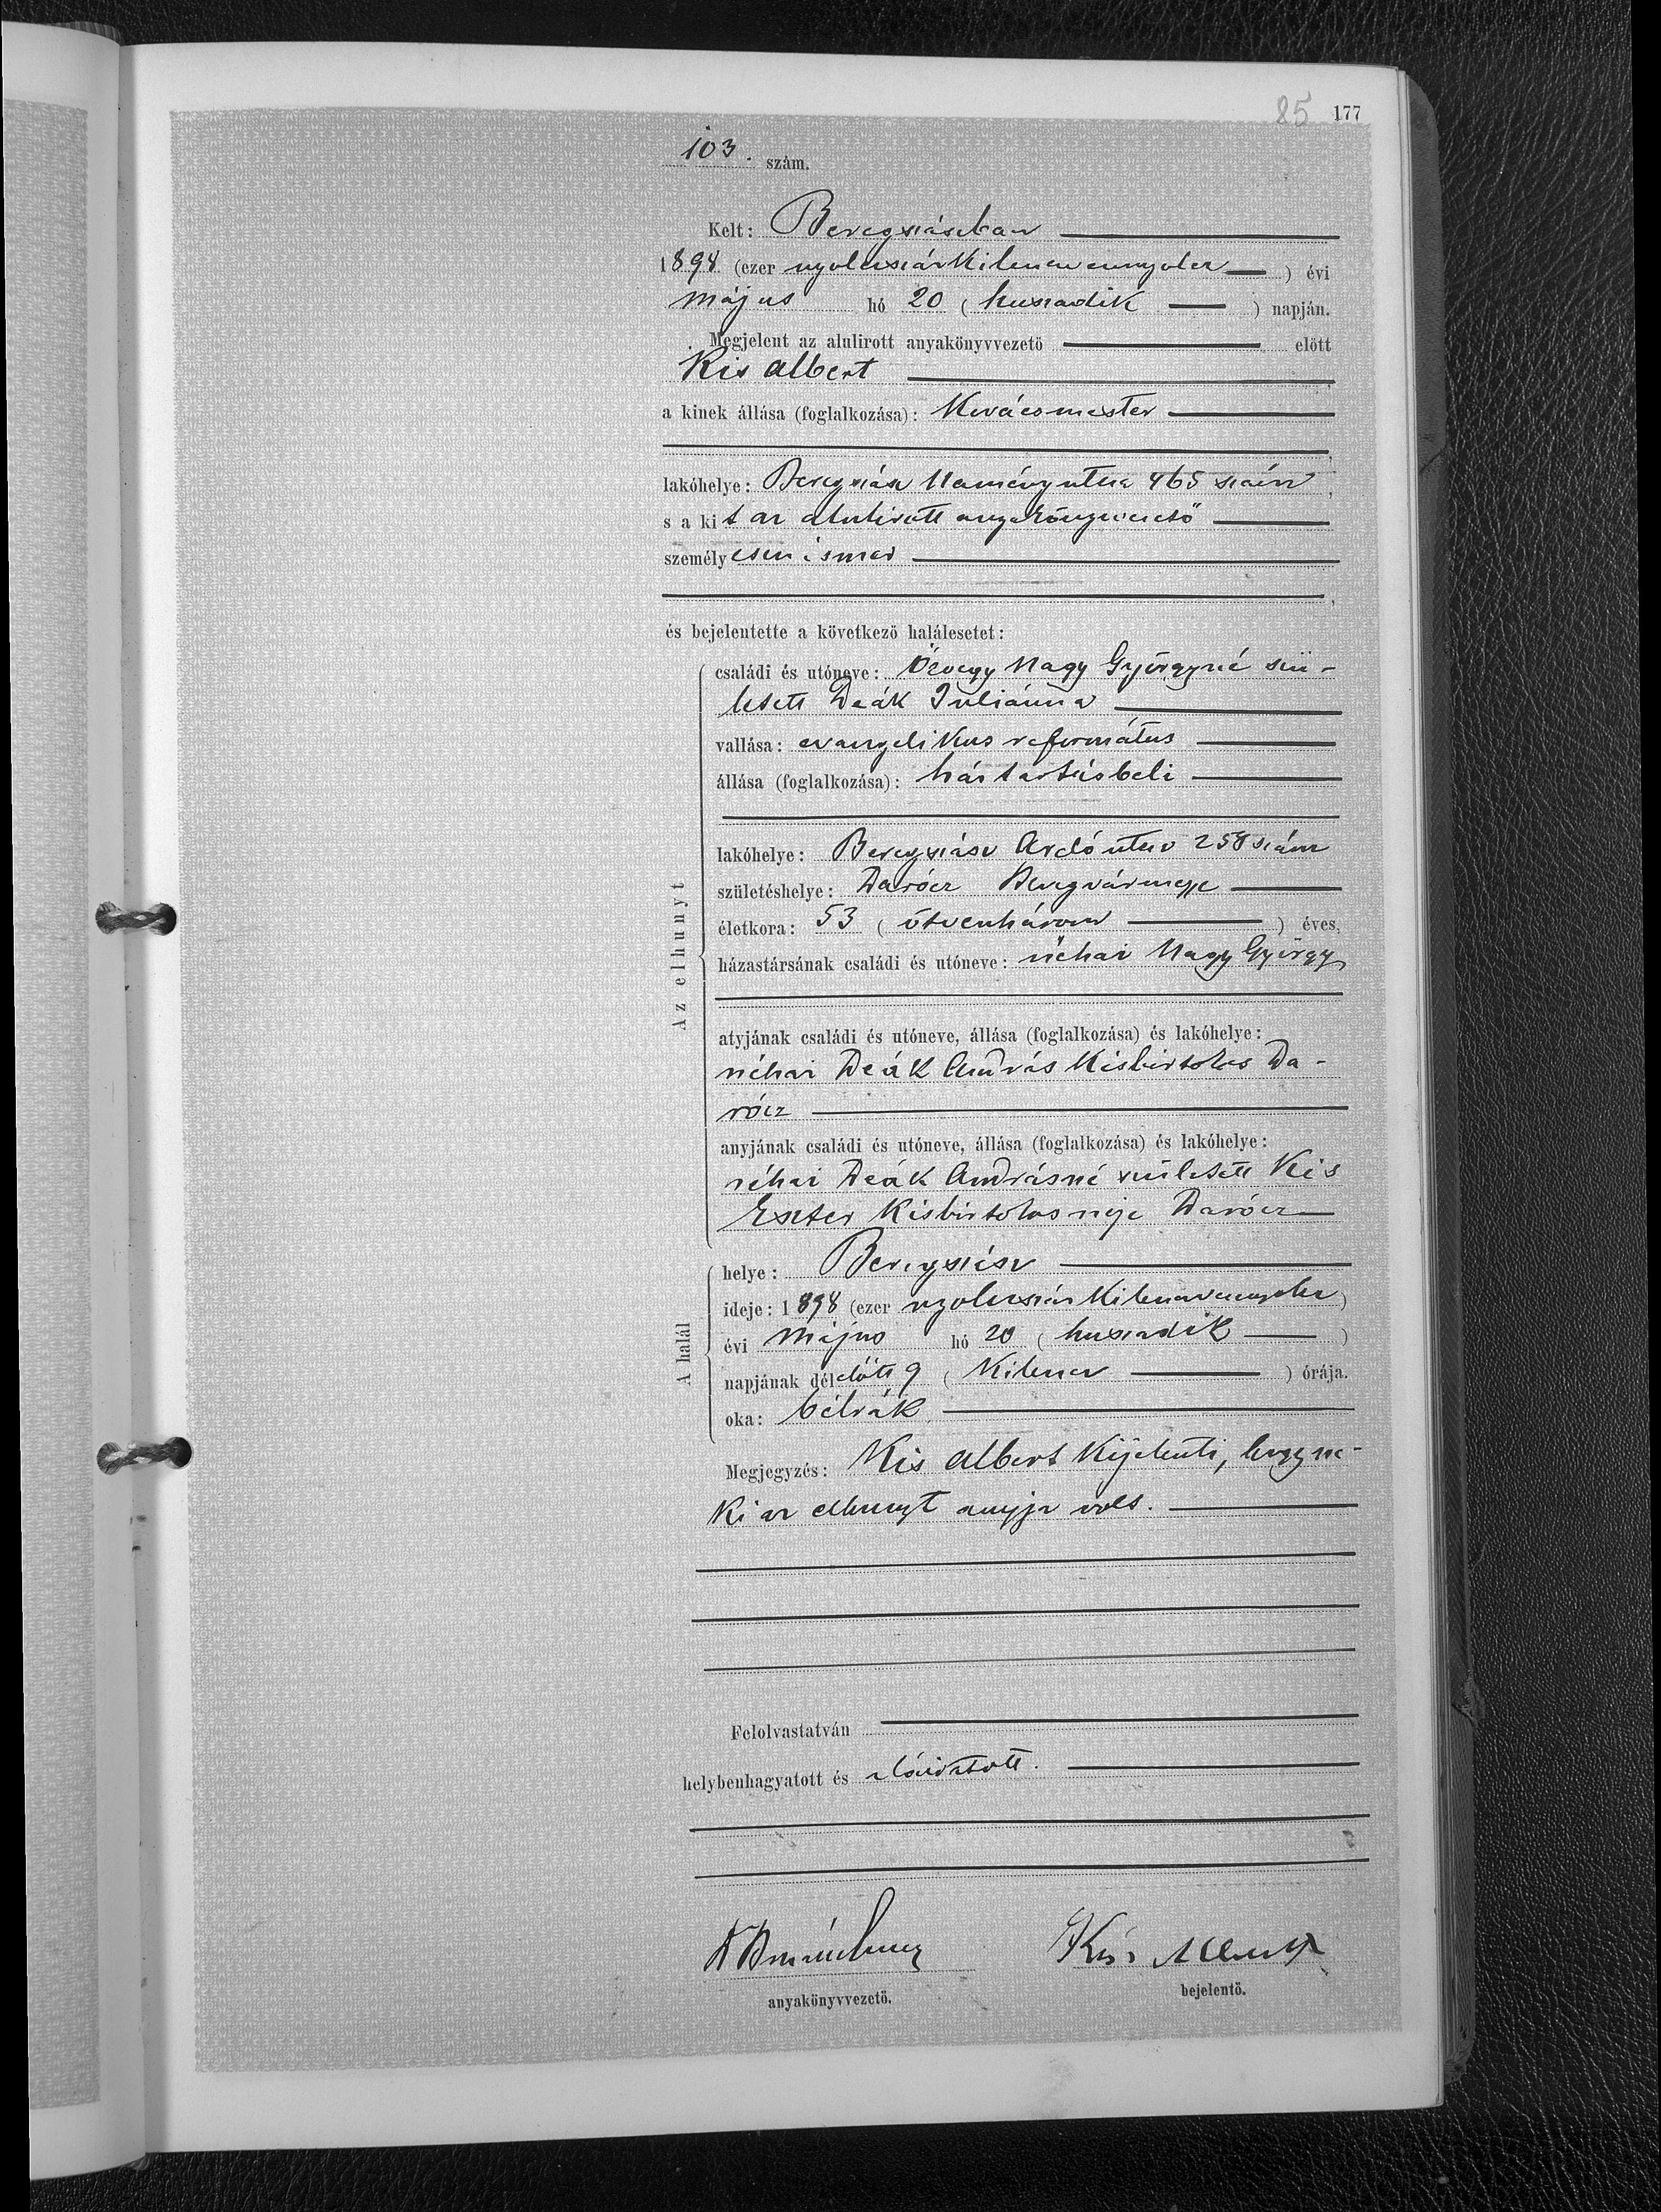 85 177
103. szám.
Kelt: Beregszászban
1898 (ezer nyolcszázkilencvennyolcz) évi
május hó 20 (huszadik) napján.
Megjelent az alulirott anyakönyvvezető előtt
Kis Albert
a kinek állása (foglalkozása): Kovácsmester
lakóhelye: Beregszász Naményutca 465 szám,
s a kit az alulirott anyakönyvvezető
személyesen ismer
és bejelentette a következő halálesetet:
Az elhunyt
családi és utóneve: Özvegy Nagy Györgyné szü-
letett Deák Juliánna
vallása: evangelikus református
állása (foglalkozása): háztartásbeli
lakóhelye: Beregszász Ardó utca 258 szám
születéshelye: Darócz Beregvármegye
életkora: 53 (ötvenhárom) éves,
házastársának családi és utóneve: néhai Nagy György
atyjának családi és utóneve, állása (foglalkozása) és lakóhelye:
néhai Deák András Kisbirtokos Da-
rócz
anyjának családi és utóneve, állása (foglalkozása) és lakóhelye:
néhai Deák Andrásné született Kis
Eszter Kisbirtokos neje Darócz
A halál
helye: Beregszász
ideje: 1898 (ezer nyolcszázkilencvennyolcz)
évi május hó 20 (huszadik)
napjának délelőtt 9 (Kilencz) órája.
oka: bélrák
Megjegyzés: Kis Albert kijelenti, hogy ne-
ki az elhunyt anyja volt.
Felolvastatván
helybenhagyatott és aláiratott.
Kis Albert
anyakönyvvezető. bejelentő.